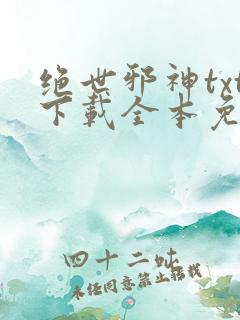 绝世邪神txt
下载全本免
四十二吔
未经同意禁止转载